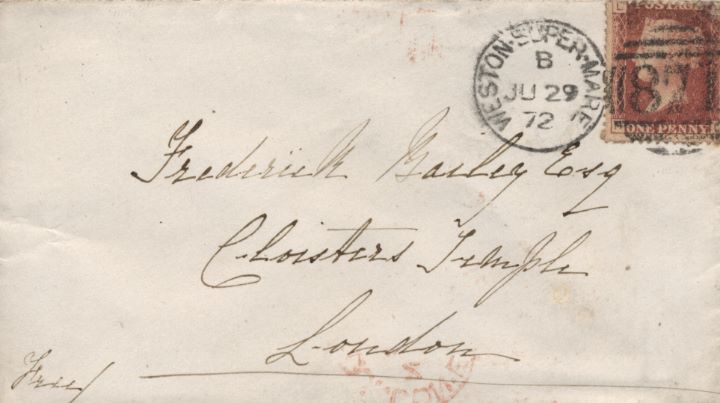 WESTON-SUPER-MARE
B
JU 29
72
POSTAGE
871
ONE PENNY
Frederick Gosley Esq
Cloisters Temple
London